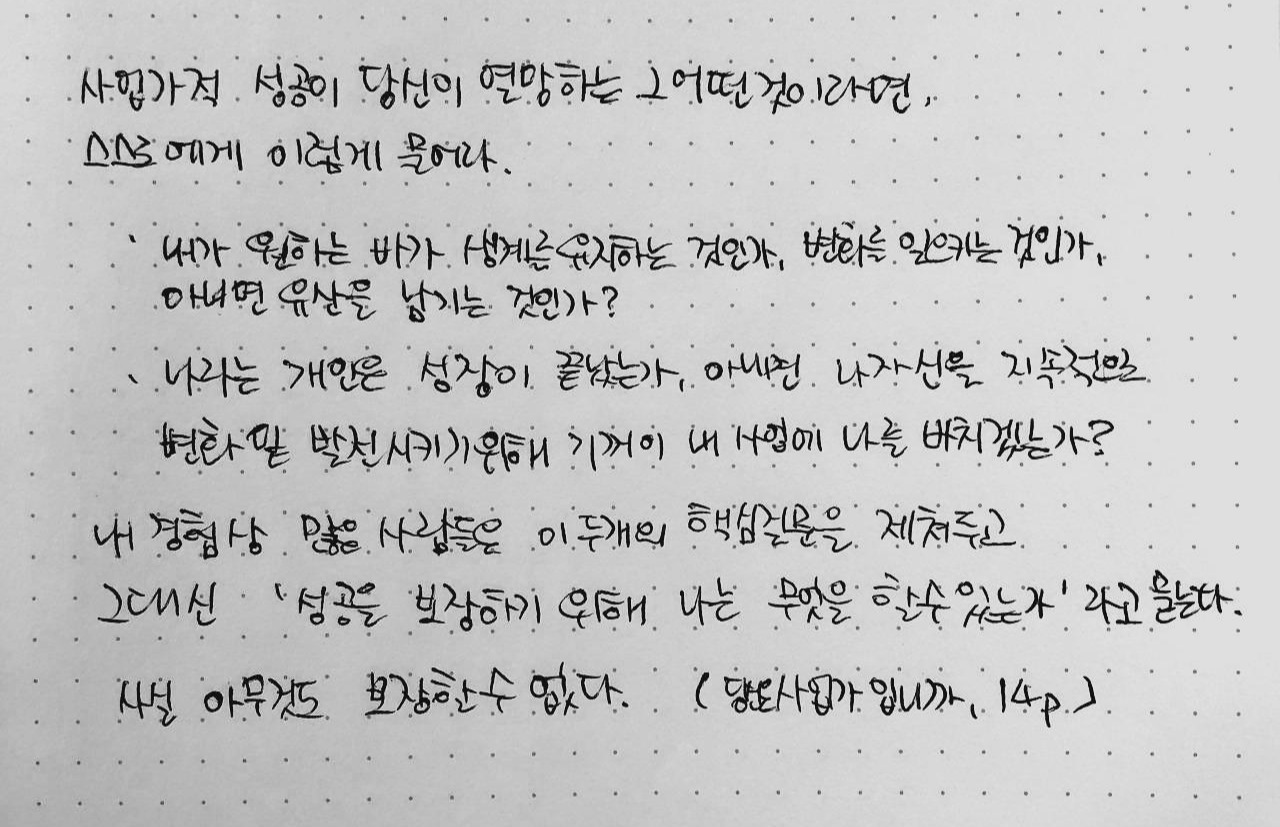 사업가적 성공이 당신이 열망하는 그 어떤 것이라면,
스스로에게 이렇게 물어라.
` 내가 원하는 바가 생계를 유지하는 것인가, 변화를 일으키는 것인가,
아니면 유산을 남기는 것인가?
` 나라는 개인은 성장이 끝났는가, 아니면 나 자신을 지속적으로
변화 및 발전시키기 위해 기꺼이 내 사업에 나를 바치겠는가?
내 경험상 많은 사람들은 이 두개의 핵심질문을 제쳐두고
그대신 '성공을 보장하기 위해 나는 무엇을 할 수 있는가' 라고 묻는다.
사실 아무것도 보장할 수 없다. (당신도 사업가입니까, 14p)